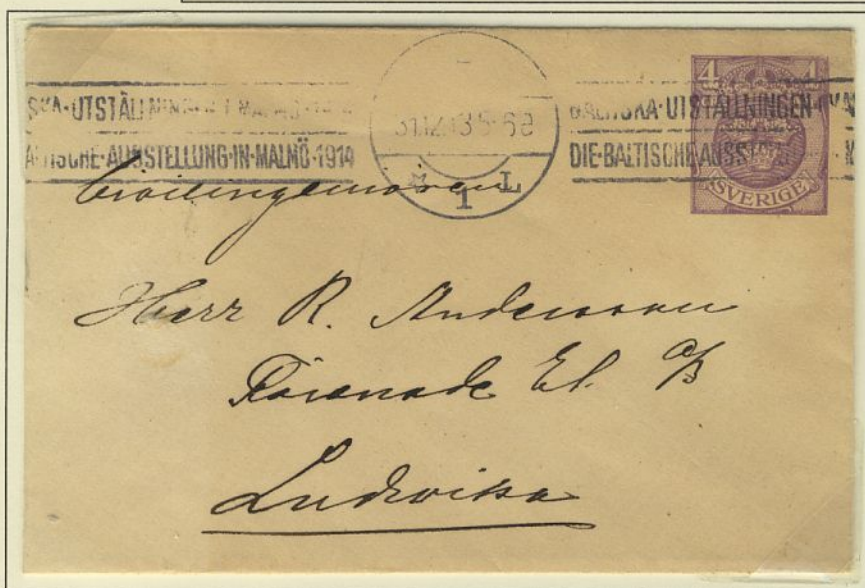 SKA·UTSTÄLLNINGEN·I·MALMÖ·1914
TISCHE·AUSSTELLUNG·IN·MALMÖ·1914
31.12.13 5-6
1 L
BALTISKA·UTSTÄLLNINGEN
DIE·BALTISCHE·AUSST
4 4
SVERIGE
Civilingeniören
Herr R. Andersson
Förenade El. A/B
Ludvika